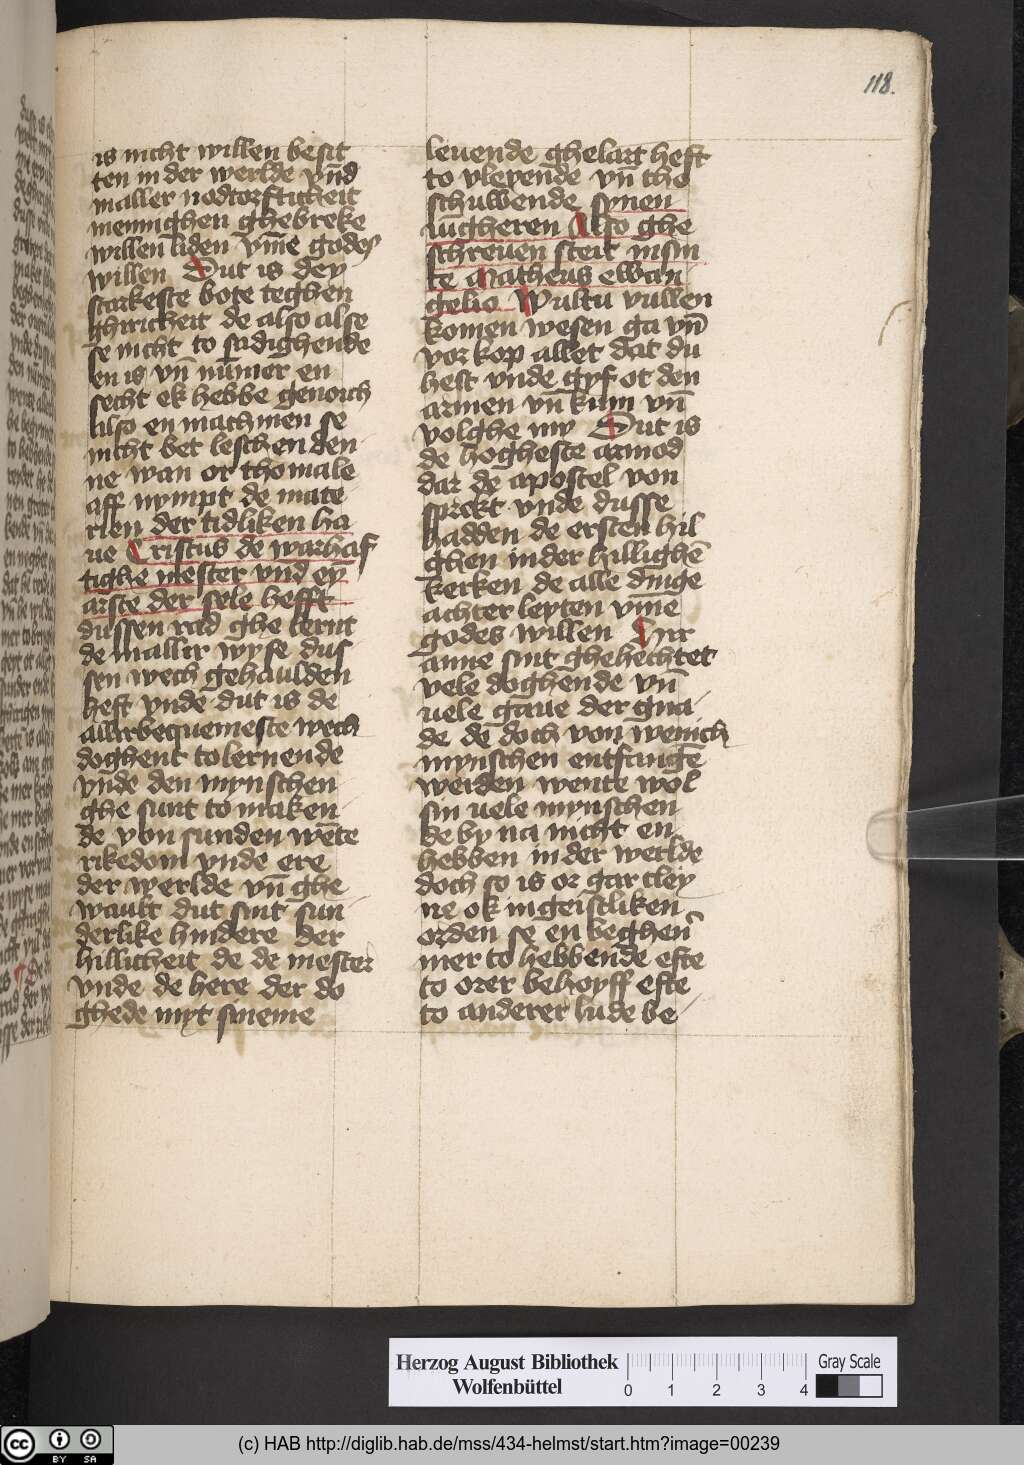 118.
is nicht willen besit
ten in der werlde vn̄d
maller nodtorfticheit
mennighen ghebreke
willen liden vm̄e godes
willen Dut is dey
starkeste bote teghen
ghiricheit de also alse
se nicht to sadighende
en is vn̄ num̄er en
secht ek hebbe genoich
Also en mach men se
nicht bet leschen den
ne wan or tho male
aff nympt de mate
rien der tidliken ha
ue Cristus de warhaf
tighe mester vnd ey
arste der sele hefft
dussen rad ghe lernt
de maller wyse dus
sen wech gehaulden
heft vnde dut is de
allerbequemeste wech
doghent to lernende
vnde den mynschen
ghe sunt to maken
de von sunden wēte
rikedom vnde ere
der werlde vn̄ ghe
wault dut sint sun
derlike hindere der
hillicheit de de mester
vnde de here der do
ghede myt sineme
leuende ghelart heft
to vleyende vn̄ tho
schuwende synen
iūgheren Also ghe
schreuen steit in sin
te Matheus ewan
gelio Wultu vullen
komen wesen ga vn̄
vorkop allet dat du
hest vnde gyf ot den
armen vn̄ kum vn̄
volghe my Dut is
de hogheste armod
dar de apostel von
sprekt vnde dusse
hadden de ersten hil
ghen in der hillighē
kerken de alle dinge
achter leyten vm̄e
godes willen Hir
anne sint ghehechtet
vele doghende vn̄
uele gaue der gna
de de doch von wenich
mynschen entfangē
werden wente wol
sin uele mynschen
de by na nicht en
hebben in der werlde
doch so is or gar cley
ne ok in geistliken
orden se en beghen̄
mer to hebbende efte
to orer behoyff efte
to anderer lude be
Herzog August Bibliothek
Wolfenbüttel
0 1 2 3 4
Gray Scale
cc BY SA
(c) HAB http://diglib.hab.de/mss/434-helmst/start.htm?image=00239